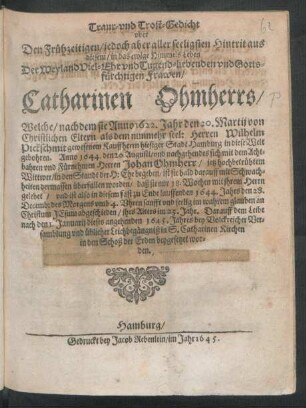 Traur- und Trost-Gedicht
uber
Den Frühzeitigen / jedoch aber aller seeligsten Hintrit aus
diesem / in das ewige Himmels Leben
Der Weyland Viel-Ehr und Tugend-liebenden und Gotts-
fürchtigen Frawen /
Catharinen Ohmherrs /
Welche / nachdem sie Anno 1622. Jahr den 20. Martii von
Christlichen Eltern als dem nunmehr seel: Herren Wilhelm
gewesenen Kauffherrn hiesiger Stadt Hamburg in diese Welt
gebohren. Anno 1644. den
und Fürnehmen Herren Johan Ohmherr /
Wittwer in den Stande der H. Ehe begeben, ist sie bald darauff mit Schwach-
heiten dermassen überfallen worden / daß sie nur Wochen mit ihrem Herrn
gelebet / und ist also in diesem fast zu Ende lauffenden 1644. Jahre den 28.
Decembr. des Morgens umb 4. Uhren sanfft und seelig im wahren glauben an
Christum JEsum abgeschieden / ihres Alters im 23. Jahr. Darauff dem Leibe
nach den Januarij dieses angehenden 1645. Jahres bey Volckreicher Ver-
samblung und üblicher Leichbegängniß in S. Catharinen Kirchen
in den Schoß der Erden beygesetzet wor-
den.
Hamburg /
Gedruckt bey Jacob Rebenlein / im Jahr 1645.